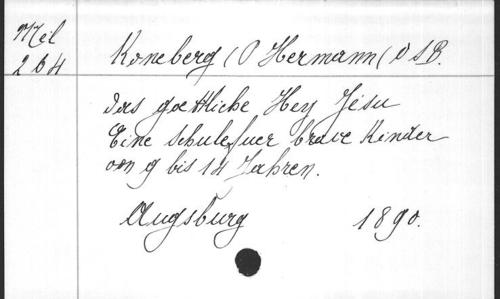 Mil
264
Koneberg (P Hermann( O S B.
das goettliche Herz Jesu
Eine schule fuer brave Kinder
von 9 bis 14 Jahren.
Augsburg 1890.